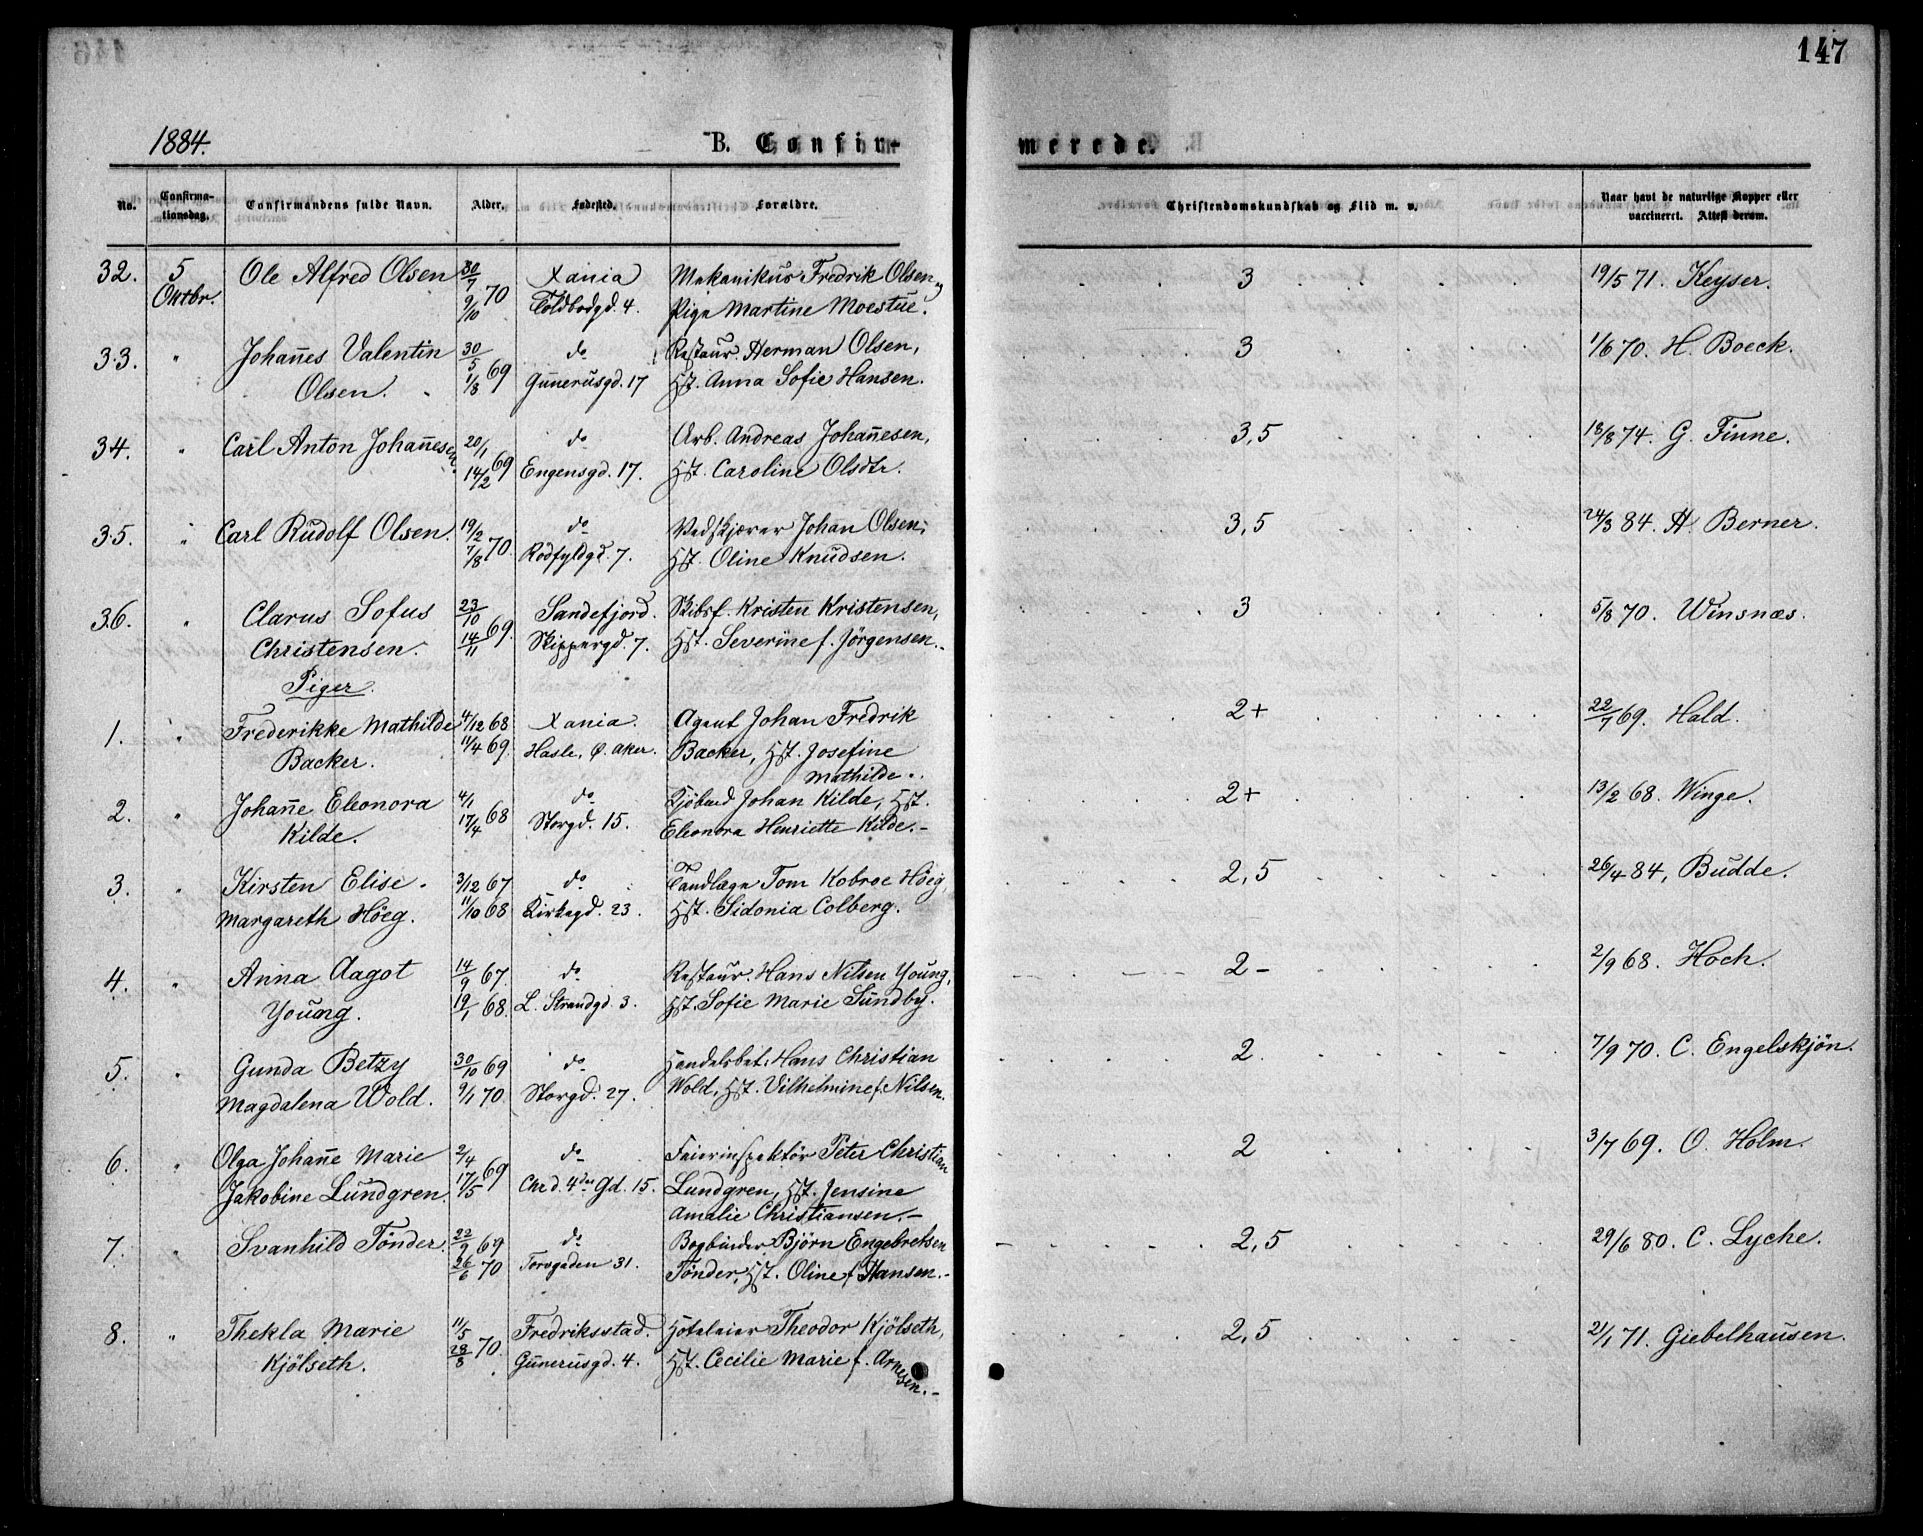 147
1884.
B. Confir-
merede.
No.
Confirma-
tionsdag.
Confirmandens fulde Navn.
Alder.
Fødested.
Forældre.
Christendomskundskab og Flid m. v.
Naar havt de naturlige Kopper eller
vaccineret. Attest derom.
32. 5 Ole Alfred Olsen 30/7 Xania Mekanikus Fredrik Olsen, 3 19/5 71. Keyser.
Oktbr. 9/10 70 Toldbodgd. 4. Pige Martine Moestue.
33. " Johan̄es Valentin 30/5 69 do Restaur. Herman Olsen, 3 1/6 70. H. Boeck.
Olsen. 1/8 Gunerusgd. 17 Hst. Anna Sofie Hansen.
34. " Carl Anton Johan̄esen. 20/1 69 do Arb. Andreas Johan̄esen, 3,5 18/8 74. G. Finne.
14/2 Engensgd. 17. Hst. Caroline Olsdtr.
35. " Carl Rudolf Olsen. 19/2 70. do Vedskjærer Johan Olsen, 3,5 24/3 84. H. Berner.
7/8 Rodfyldgd. 7. Hst. Oline Knudsen.
36. " Clarus Sofus 23/10 69. Sandefjord. Skibsf. Kristen Kristensen, 3 5/8 70. Winsnæs.
Christensen. 14/11 Skippergd. 7. Hst. Severine f. Jörgensen.
Piger.
1. " Frederikke Mathilde 4/12 68 Xania. Agent Johan Fredrik 2+ 22/7 69. Hald.
Backer. 11/4 69. Hasle, Ø. Aker. Backer, Hst. Josefine
Mathilde.
2. " Johan̄e Eleonora 4/1 68 do Kjöbmd Johan Kilde, Hst. 2+ 13/2 68. Winge.
Kilde. 17/4 Storgd. 15. Eleonora Henriette Kilde.-
3. " Kirsten Elise 3/12 67 do Tandlæge Tom Kobroe Höeg, 2,5 26/4 84, Budde.
Margareth Höeg. 11/10 68 Kirkegd. 23. Hst. Sidonia Colberg.
4. " Anna Aagot 14/9 67. do Restaur. Hans Nilsen Young, 2- 2/9 68. Hoch.
Young. 19/1 68. L. Strandgd. 3. Hst. Sofie Marie Sundby.
5. " Gunda Betzy 30/10 69 do Handelsbet. Hans Christian 2. 7/9 70. C. Engelskjön.
Magdalena Wold. 9/1 70. Storgd. 27. Wold, Hst. Vilhelmine f. Nilsen.
6. " Olga Johan̄e Marie 2/4 69 do Feierinspektör Peter Christian 2 3/7 69. O. Holm.
Jakobine Lundgren. 17/5 Chr d. 4des Gd. 15. Lundgren, Hst. Jensine
Amalie Christiansen.-
7. " Svanhild Tönder. 22/9 69 do Bogbinder Björn Engebretsen 2,5 29/6 80. C. Lyche.
26/6 70 Torvgaden 31. Tönder, Hst. Oline f. Hansen.-
8. " Thekla Marie 11/5 70. Fredriksstad. Hoteleier Theodor Kjölseth, 2,5 21/1 71. Giebelhausen.
Kjölseth. 28/8 Gunerusgd. 4. Hst. Cecilie Marie f. Arnesen.-